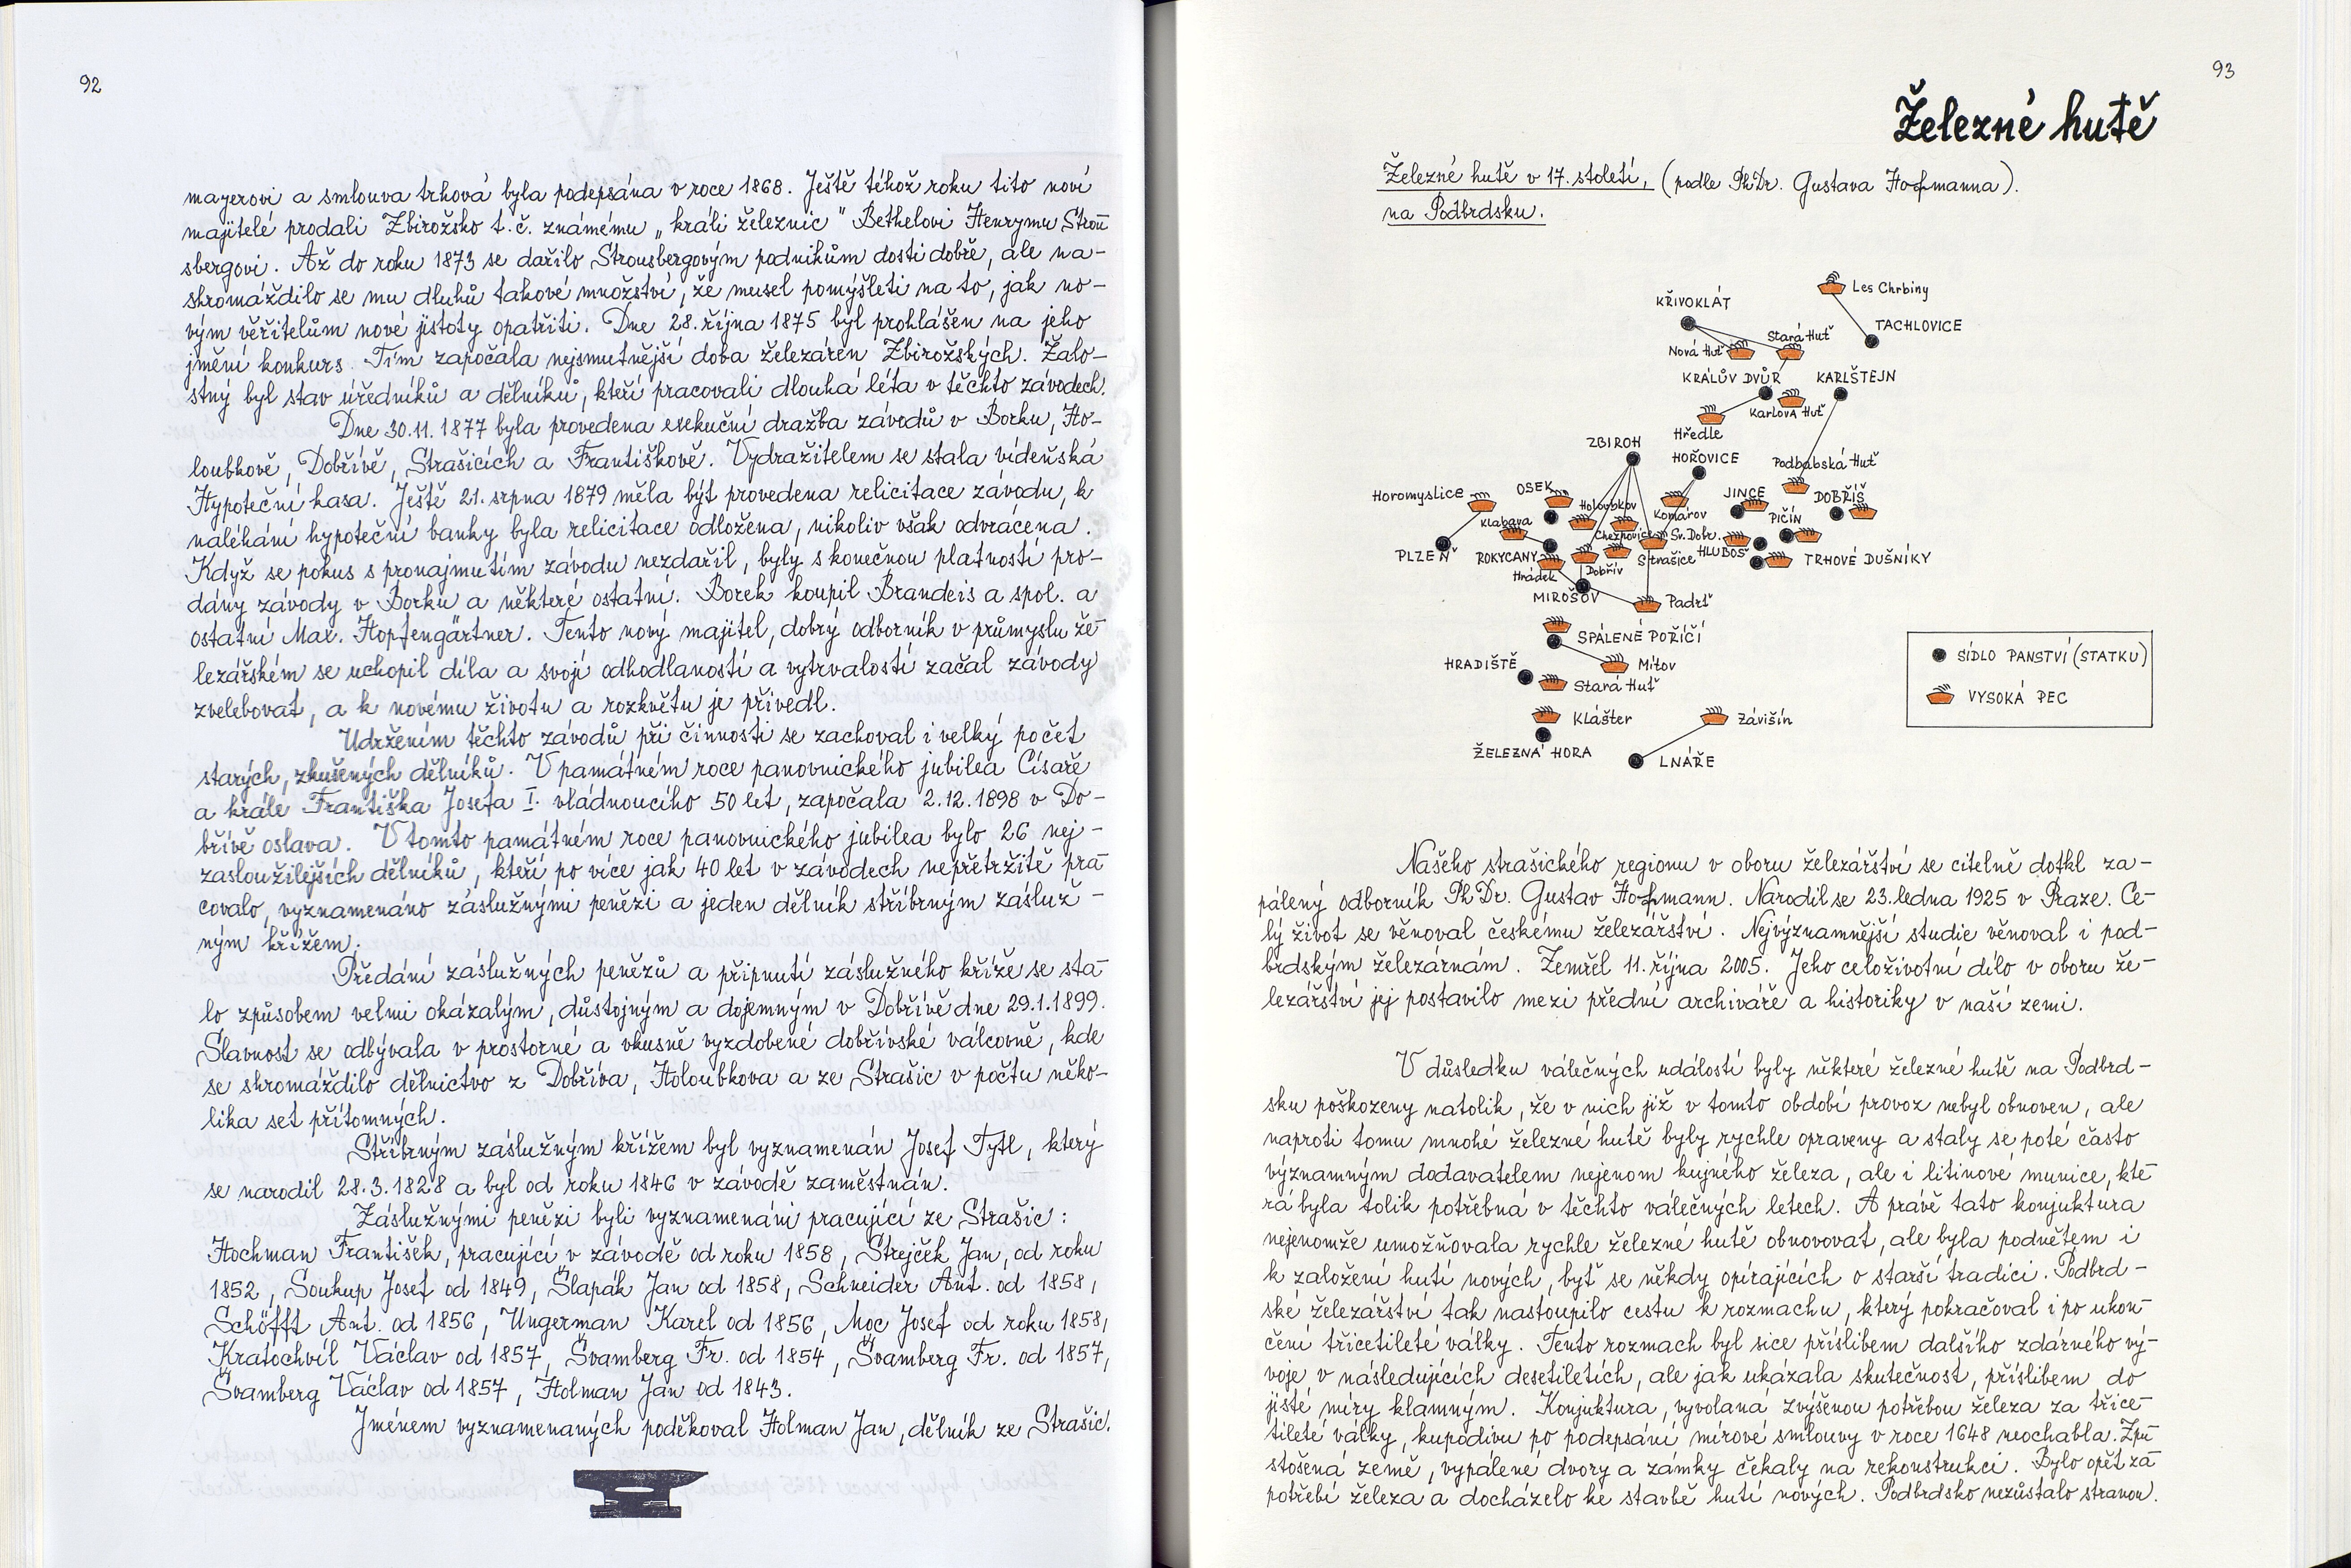 92
mayerovi a smlouva trhová byla podepsána v roce 1868. Ještě téhož roku tito noví
majitelé prodali Zbirožsko t.č. známému „králi železnic" Bethelovi Henrymu Strou
sbergovi. Až do roku 1873 se dařilo Strousbergovým podnikům dosti dobře, ale na-
shromáždilo se mu dluhů takové množství, že musel pomýšleti na to, jak no-
vým věřitelům nové jistoty opatřiti. Dne 28. října 1875 byl prohlášen na jeho
jmění konkurs. Tím započala nejsmutnější doba železáren Zbirožských. Žalo-
stný byl stav úředníků a dělníků, kteří pracovali dlouhá léta v těchto závodech.
Dne 30.11. 1877 byla provedena exekuční dražba závodů v Borku, Ho-
loubkově, Dobřívě, Strašicích a Františkově. Vydražitelem se stala vídeňská
Hypoteční kasa. Ještě 21. srpna 1879 měla být provedena relicitace závodu, k
naléhání hypoteční banky byla relicitace odložena, nikoliv však odvrácena.
Když se pokus s pronajmutím závodu nezdařil, byly s konečnou platností pro-
dány závody v Borku a některé ostatní. Borek koupil Brandeis a spol. a
ostatní Max. Hopfengärtner. Tento nový majitel, dobrý odborník v průmyslu že-
lezářském se uchopil díla a svojí odhodlaností a vytrvalostí začal závody
zvelebovat, a k novému životu a rozkvětu je přivedl.
Udržením těchto závodů při činnosti se zachoval i velký počet
starých, zkušených dělníků. V památném roce panovnického jubilea Císaře
a krále Františka Josefa I. vládnoucího 50 let, započala 2.12.1898 v Do-
břívě oslava. V tomto památném roce panovnického jubilea bylo 26 nej-
zasloužilejších dělníků, kteří po více jak 40 let v závodech nepřetržitě pra
covalo, vyznamenáno záslužnými penězi a jeden dělník stříbrným zásluž-
ným křížem.
Předání záslužných penězů a připnutí záslužného kříže se sta
lo způsobem velmi okázalým, důstojným a dojemným v Dobřívě dne 29.1.1899.
Slavnost se odbývala v prostorné a vkusně vyzdobené dobřívské válcovně, kde
se shromáždilo dělnictvo z Dobříva, Holoubkova a ze Strašic v počtu něko-
lika set přítomných.
Stříbrným záslužným křížem byl vyznamenán Josef Tytl, který
se narodil 28.3.1828 a byl od roku 1846 v závodě zaměstnán.
Záslužnými penězi byli vyznamenáni pracující ze Strašic:
Hochman František, pracující v závodě od roku 1858, Strejček Jan, od roku
1852, Soukup Josef od 1849, Šlapák Jan od 1858, Schneider Ant. od 1858,
Schöfft Ant. od 1856, Ungerman Karel od 1856, Moc Josef od roku 1858,
Kratochvíl Václav od 1857, Švamberg Fr. od 1854, Švamberg Fr. od 1857,
Švamberg Václav od 1857, Holman Jan od 1843.
Jménem vyznamenaných poděkoval Holman Jan, dělník ze Strašic.
93
Železné hutě
Železné hutě v 17. století, (podle PhDr. Gustava Hofmanna).
na Podbrdsku.
Les Chrbiny
KŘIVOKLÁT
TACHLOVICE
Stará Huť
Nová Huť
KRÁLŮV DVŮR
KARLŠTEJN
Karlova Huť
Hředle
ZBIROH
HOŘOVICE
Podbabská Huť
Horomyslice
OSEK
JINCE
DOBŘÍŠ
Holoubkov
Komárov
Klabava
PIČÍN
Cheznovice
Sv. Dobr.
PLZEŇ
ROKYCANY
Strašice
HLUBOŠ
TRHOVÉ DUŠNÍKY
Hrádek
Dobřív
MIROŠOV
Padrť
SPÁLENÉ POŘÍČÍ
HRADIŠTĚ
Mítov
Stará Huť
Klášter
Závišín
ŽELEZNÁ HORA
LNÁŘE
SÍDLO PANSTVÍ (STATKU)
VYSOKÁ PEC
Našeho strašického regionu v oboru železářství se citelně dotkl za-
pálený odborník PhDr. Gustav Hofmann. Narodil se 23. ledna 1925 v Praze. Ce-
lý život se věnoval českému železářství. Nejvýznamnější studie věnoval i pod-
brdským železárnám. Zemřel 11. října 2005. Jeho celoživotní dílo v oboru že-
lezářství jej postavilo mezi přední archiváře a historiky v naší zemi.
V důsledku válečných událostí byly některé železné hutě na Podbrd-
sku poškozeny natolik, že v nich již v tomto období provoz nebyl obnoven, ale
naproti tomu mnohé železné hutě byly rychle opraveny a staly se poté často
významným dodavatelem nejenom kujného železa, ale i litinové munice, kte-
rá byla tolik potřebná v těchto válečných letech. A právě tato konjuktura
nejenomže umožňovala rychle železné hutě obnovovat, ale byla podnětem i
k založení hutí nových, byť se někdy opírajících o starší tradici. Podbrd-
ské železářství tak nastoupilo cestu k rozmachu, který pokračoval i po ukon-
čení třicetileté války. Tento rozmach byl sice příslibem dalšího zdárného vý-
voje v následujících desetiletích, ale jak ukázala skutečnost, příslibem do
jisté míry klamným. Konjuktura, vyvolaná zvýšenou potřebou železa za třice-
tileté války, kupodivu po podepsání mírové smlouvy v roce 1648 neochabla. Zpu-
stošená země, vypálené dvory a zámky čekaly na rekonstrukci. Bylo opět za-
potřebí železa a docházelo ke stavbě hutí nových. Podbrdsko nezůstalo stranou.